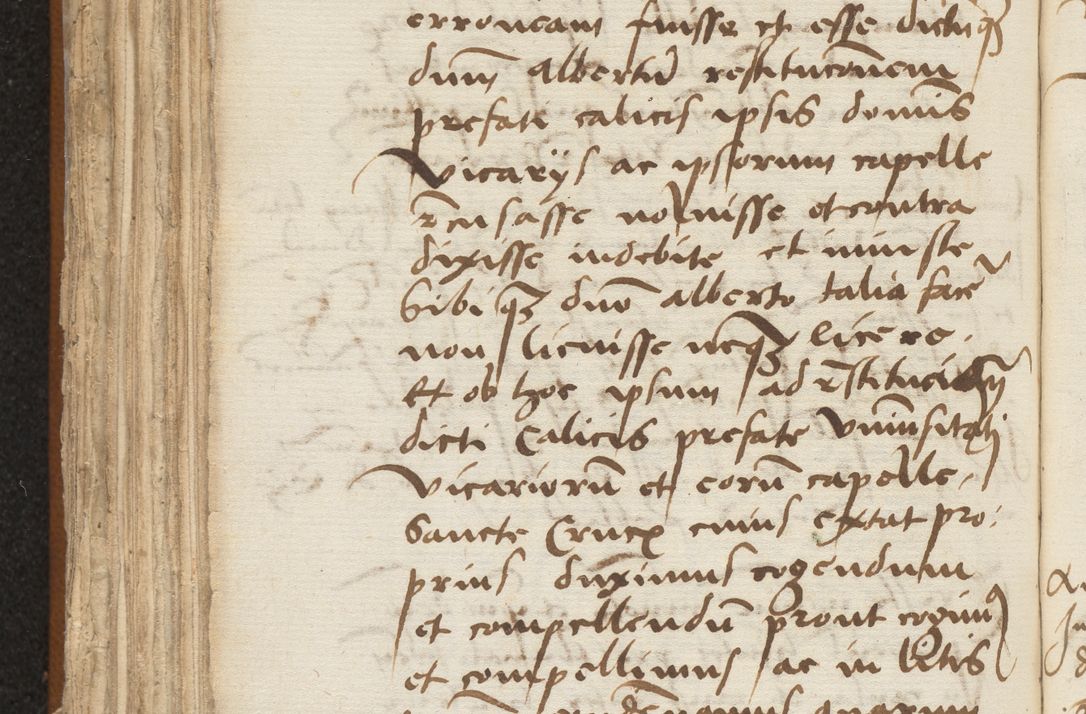 erroneam fuisse et esse dictūq3
dum̄ albertū restitucōnem
prefati calicis ipsis domīs
Vicarijs ac ipsorum capelle
rēcusasse noluisse et contra
dixisse indebite et iniuste
Sibiq3 dn̄o alberto talia facē
non licuisse neq3 licere.
Et ob hoc ipsum ad rēstituciōn̄
dicti Calicis prefate Vniūsitati
Vicariorū et eorū capelle,
Sancte Crucꝭ cuius extat pro:
prius duximus cogendum
et compellendū prout cogim9
et compellimus ac in litis